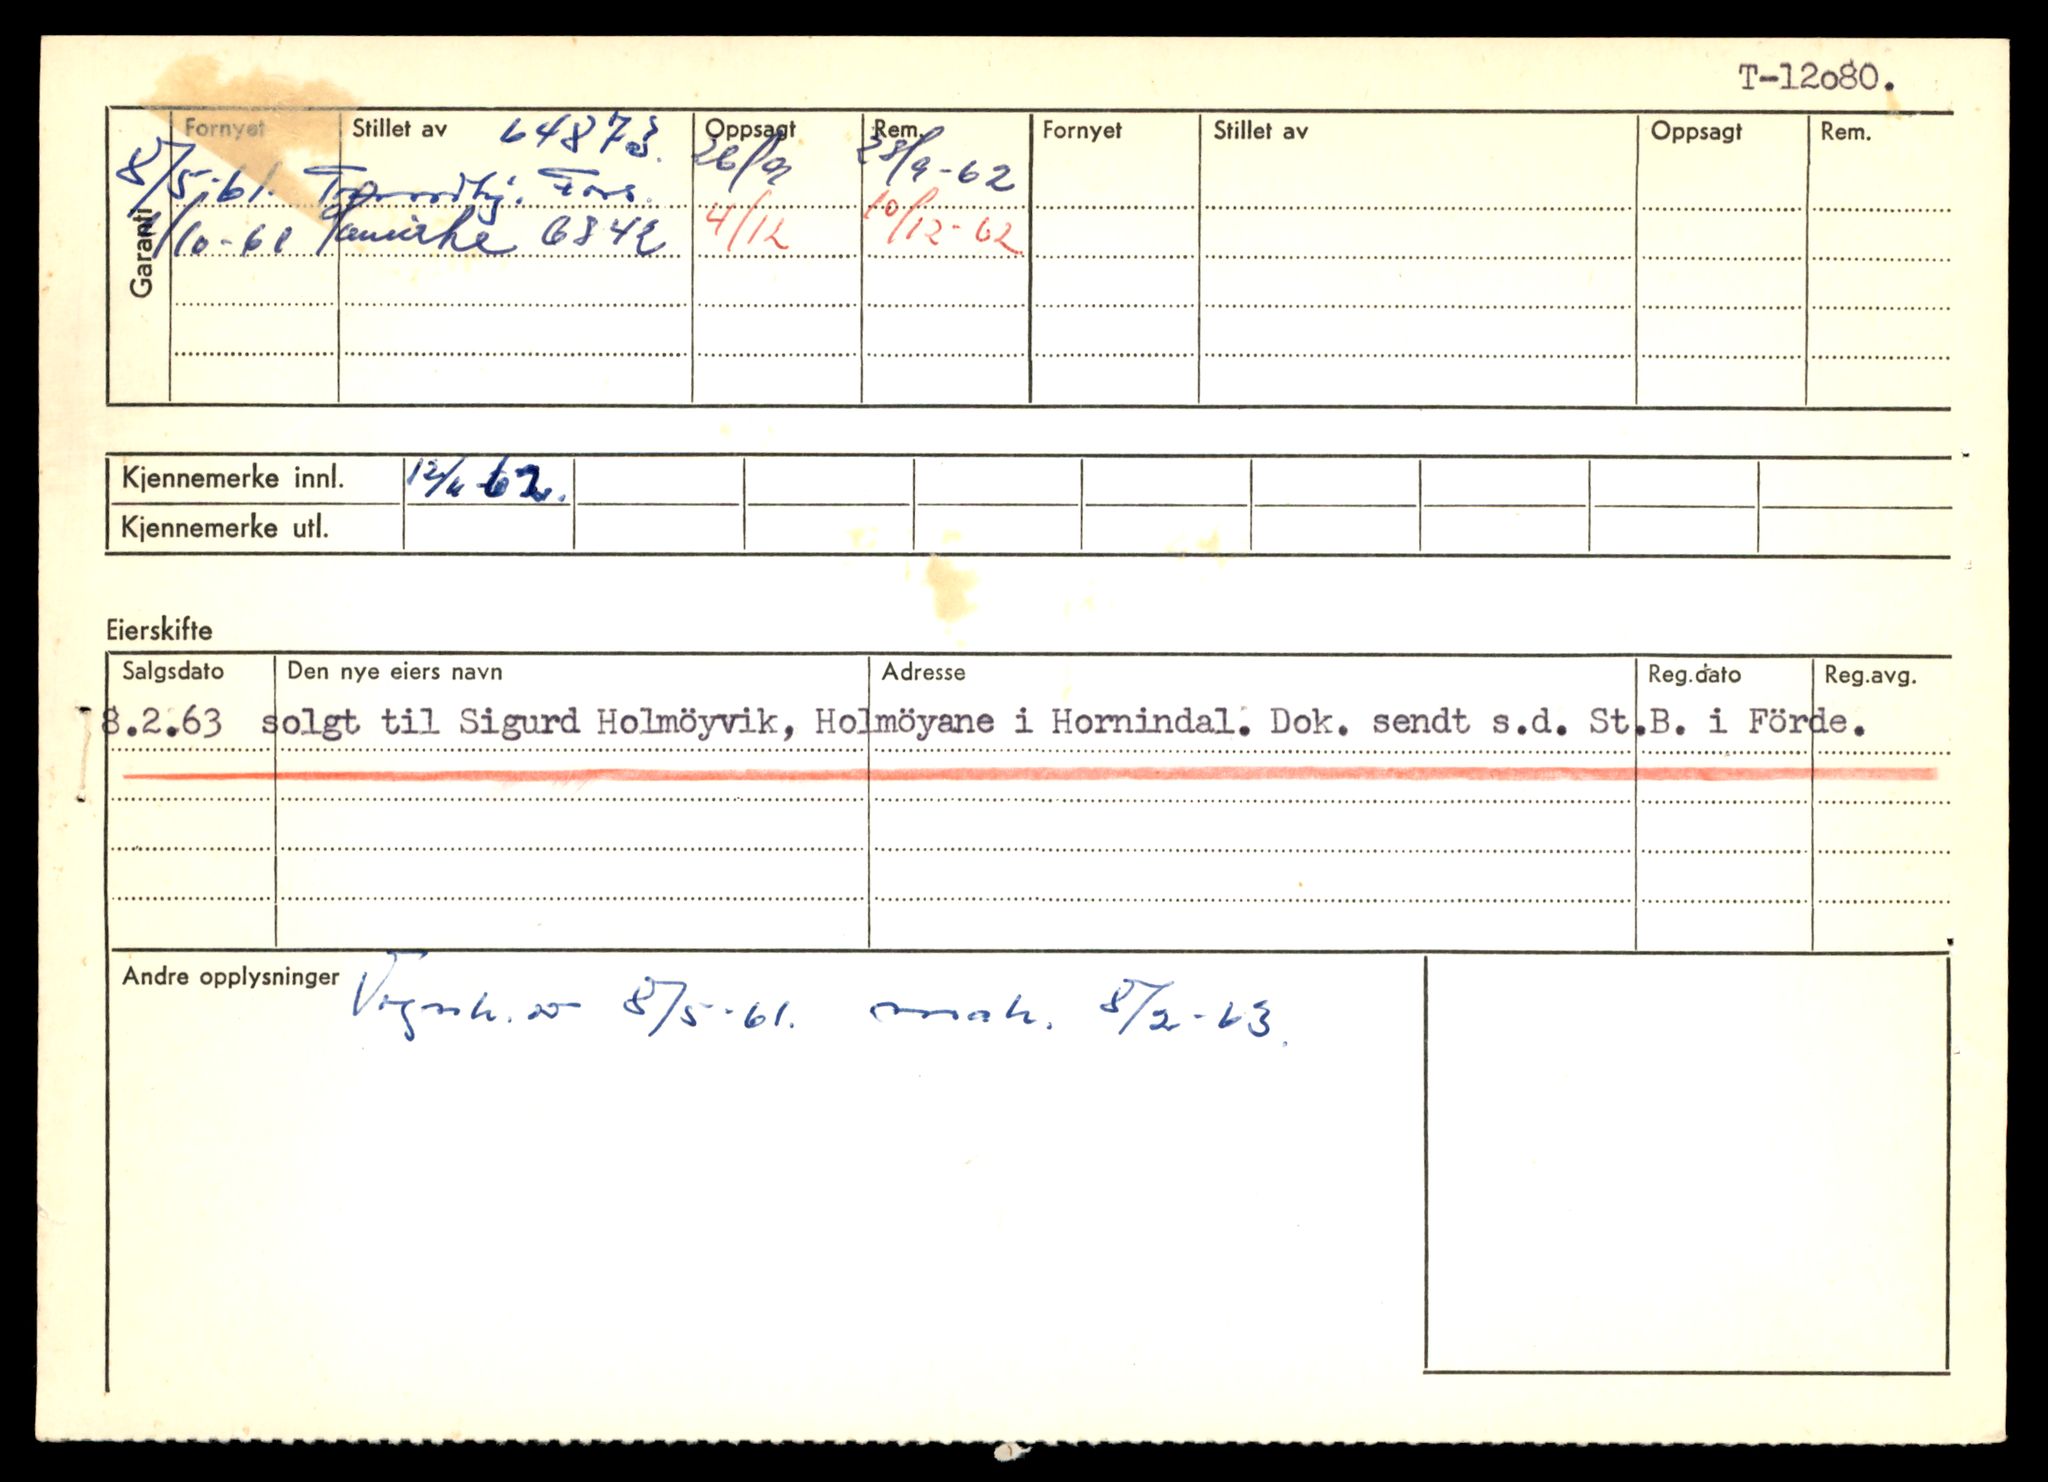 T-12o80.
Garanti
Fornyet Stillet av 64873. Oppsagt Rem. Fornyet Stillet av Oppsagt Rem.
8/5-61. Fors. 26/9 28/9-62
/10-61 6842 4/12 10/12-62
Kjennemerke innl. 12/11-62.
Kjennemerke utl.
Eierskifte
Salgsdato Den nye eiers navn Adresse Reg.dato Reg.avg.
8.2.63 solgt til Sigurd Holmöyvik, Holmöyane i Hornindal. Dok. sendt s.d. St.B. i Förde.
Andre opplysninger Vognk. 8/5-61. mak. 8/2-63.